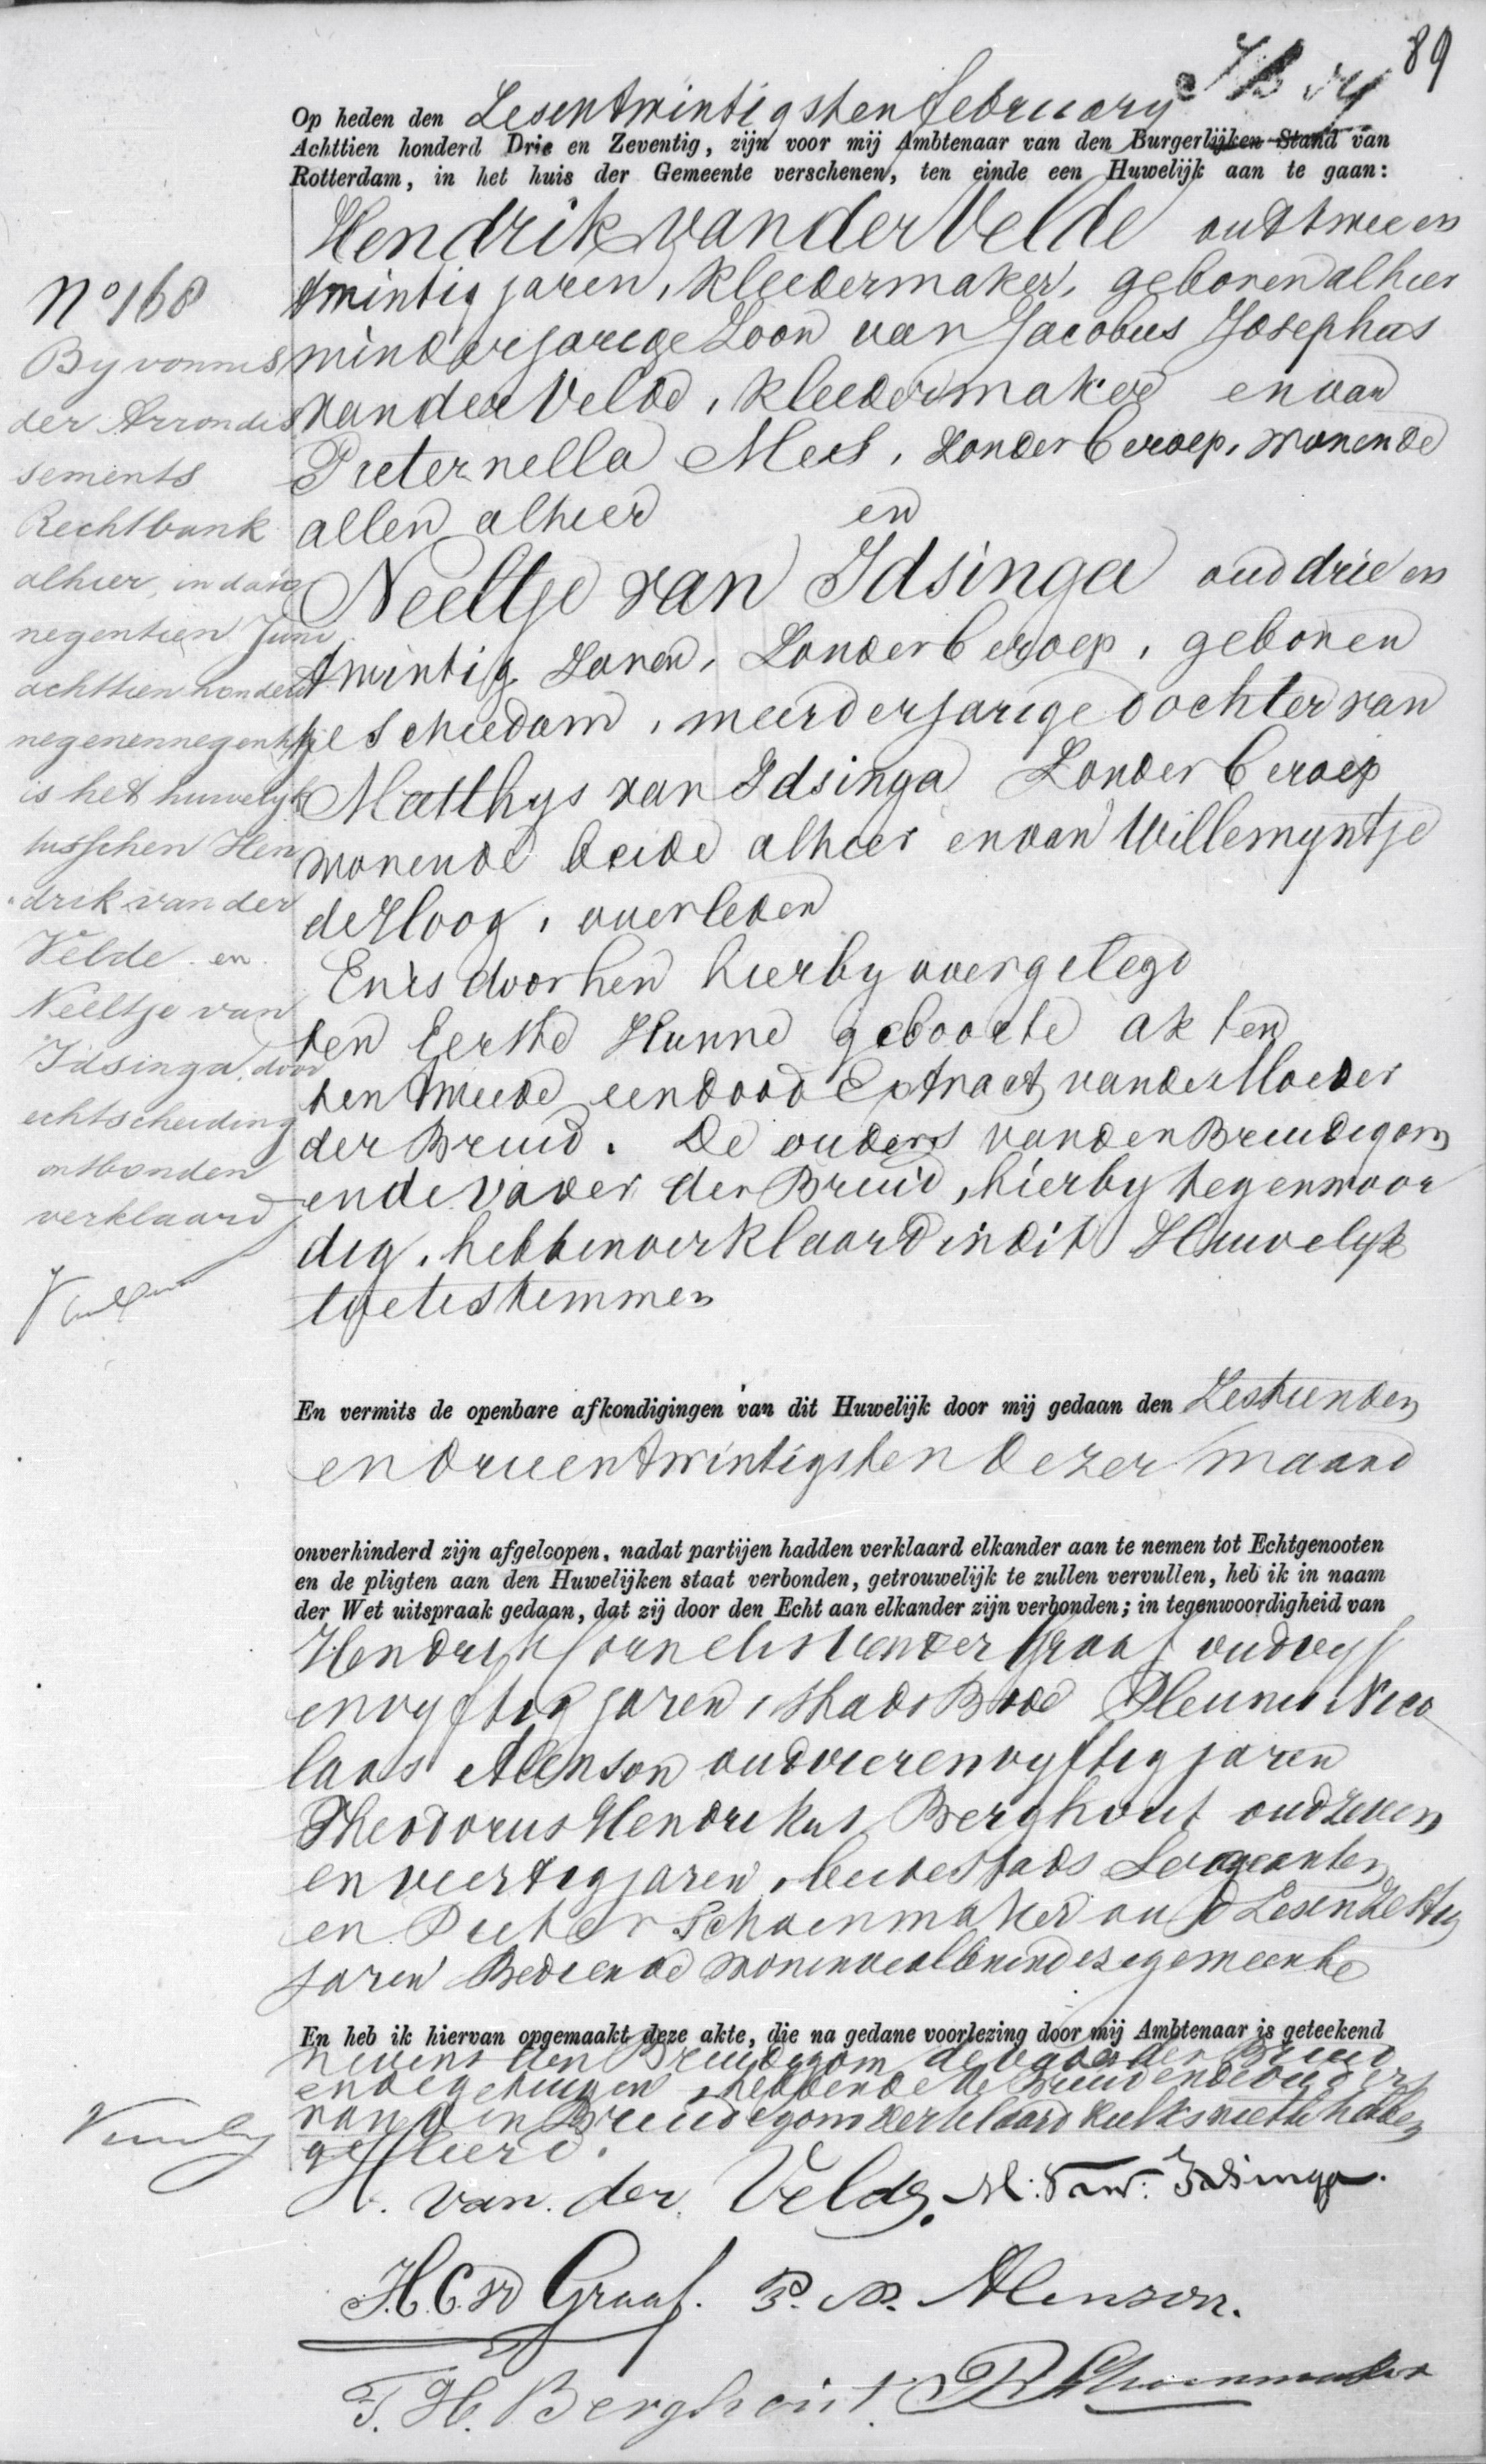 89
Op heden den Zesentwintigsten february
Achttien honderd Drie en Zeventig, zijn voor mij Ambtenaar van den Burgerlijken Stand van
Rotterdam, in het huis der Gemeente verschenen, ten einde een Huwelijk aan te gaan:
Hendrik van der Velde oud twee en
twintig jaren, kleedermaker, geboren alhier
minderjarige Zoon van Jacobus Josephus
van der Velde, kleedermaker en van
Pieternella Mees, zonder beroep, wonende
allen alhier en
Neeltje van Idsinga oud drie en
twintig Jaren, Zonder beroep, geboren
te Schiedam, meerderjarige dochter van
Matthys van Idsinga Zonder beroep
wonende beide alhier en van Willemyntje
de Hoog, overleden
En is door hen hierby overgelegd
ten Eerste Hunne geboorte akten
ten tweede een dood Extract van de Moeder
der Bruid. De ouders van den Bruidegom
en de vader der Bruid, hierby tegenwoor
dig, hebben verklaard in dit Huwelyk
toe te stemmen
No 168
By vonnis
der Arrondis
sements
Rechtbank
alhier, in dato
negentien Juni
achttien honderd
negenennegentig
is het huwelyk
tusschen Hen
drik van der
Velde en
Neeltje van
Idsinga, door
echtscheiding
ontbonden
verklaard
En vermits de openbare afkondigingen van dit Huwelijk door mij gedaan den Zestienden
en drieentwintigsten dezer maand
onverhinderd zijn afgeloopen, nadat partijen hadden verklaard elkander aan te nemen tot Echtgenooten
en de pligten aan den Huwelijken staat verbonden, getrouwelijk te zullen vervullen, heb ik in naam
der Wet uitspraak gedaan, dat zij door den Echt aan elkander zijn verbonden; in tegenwoordigheid van
Hendrik Cornelis van der Graaf oud vyf
en vyftig jaren, stads Bode Pleunis Nico
laas Alenson oud vierenvyftig jaren
Theodorus Hendrikus Berghout oud zeven
en veertig jaren, beide stads Sergeanten
en Pieter Schoenmaker oud Zesenzestig
jaren Bediende wonende allen in deze gemeente
En heb ik hiervan opgemaakt deze akte, die na gedane voorlezing door mij Ambtenaar is geteekend
nevens den Bruidegom de vader der Bruid
en de getuigen, hebbende de Bruid en de ouders
van den Bruidegom verklaard zulks niet te hebben
geleerd.
H. van der Velde. M. van Idsinga.
H. C. vd Graaf. P. N. Alenson.
T. H. Berghout. P Schoenmaker